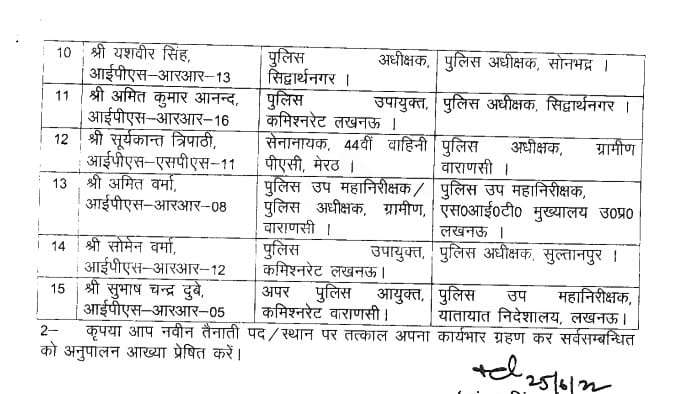 10 श्री यशवीर सिंह, पुलिस अधीक्षक, पुलिस अधीक्षक, सोनभद्र ।
आईपीएस–आरआर–13 सिद्वार्थनगर ।
11 श्री अमित कुमार आनन्द, पुलिस उपायुक्त, पुलिस अधीक्षक, सिद्वार्थनगर ।
आईपीएस–आरआर–16 कमिश्नरेट लखनऊ ।
12 श्री सूर्यकान्त त्रिपाठी, सेनानायक, 44वीं वाहिनी पुलिस अधीक्षक, ग्रामीण
आईपीएस–एसपीएस–11 पीएसी, मेरठ । वाराणसी ।
13 श्री अमित वर्मा, पुलिस उप महानिरीक्षक/ पुलिस उप महानिरीक्षक,
आईपीएस–आरआर–08 पुलिस अधीक्षक, ग्रामीण, एस0आई0टी0 मुख्यालय उ0प्र0
वाराणसी । लखनऊ ।
14 श्री सोमेन वर्मा, पुलिस उपायुक्त, पुलिस अधीक्षक, सुल्तानपुर ।
आईपीएस–आरआर–12 कमिश्नरेट लखनऊ।
15 श्री सुभाष चन्द्र दुबे, अपर पुलिस आयुक्त, पुलिस उप महानिरीक्षक,
आईपीएस–आरआर–05 कमिश्नरेट वाराणसी। यातायात निदेशालय, लखनऊ।
2– कृपया आप नवीन तैनाती पद/स्थान पर तत्काल अपना कार्यभार ग्रहण कर सर्वसम्बन्धित
को अनुपालन आख्या प्रेषित करें।
25/6/22